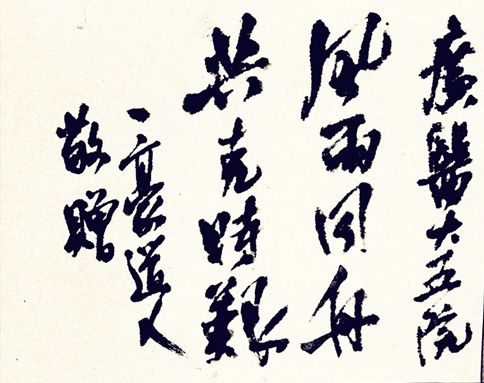 廣醫大五院
風雨同舟
共克時艱
一豪道人
敬贈